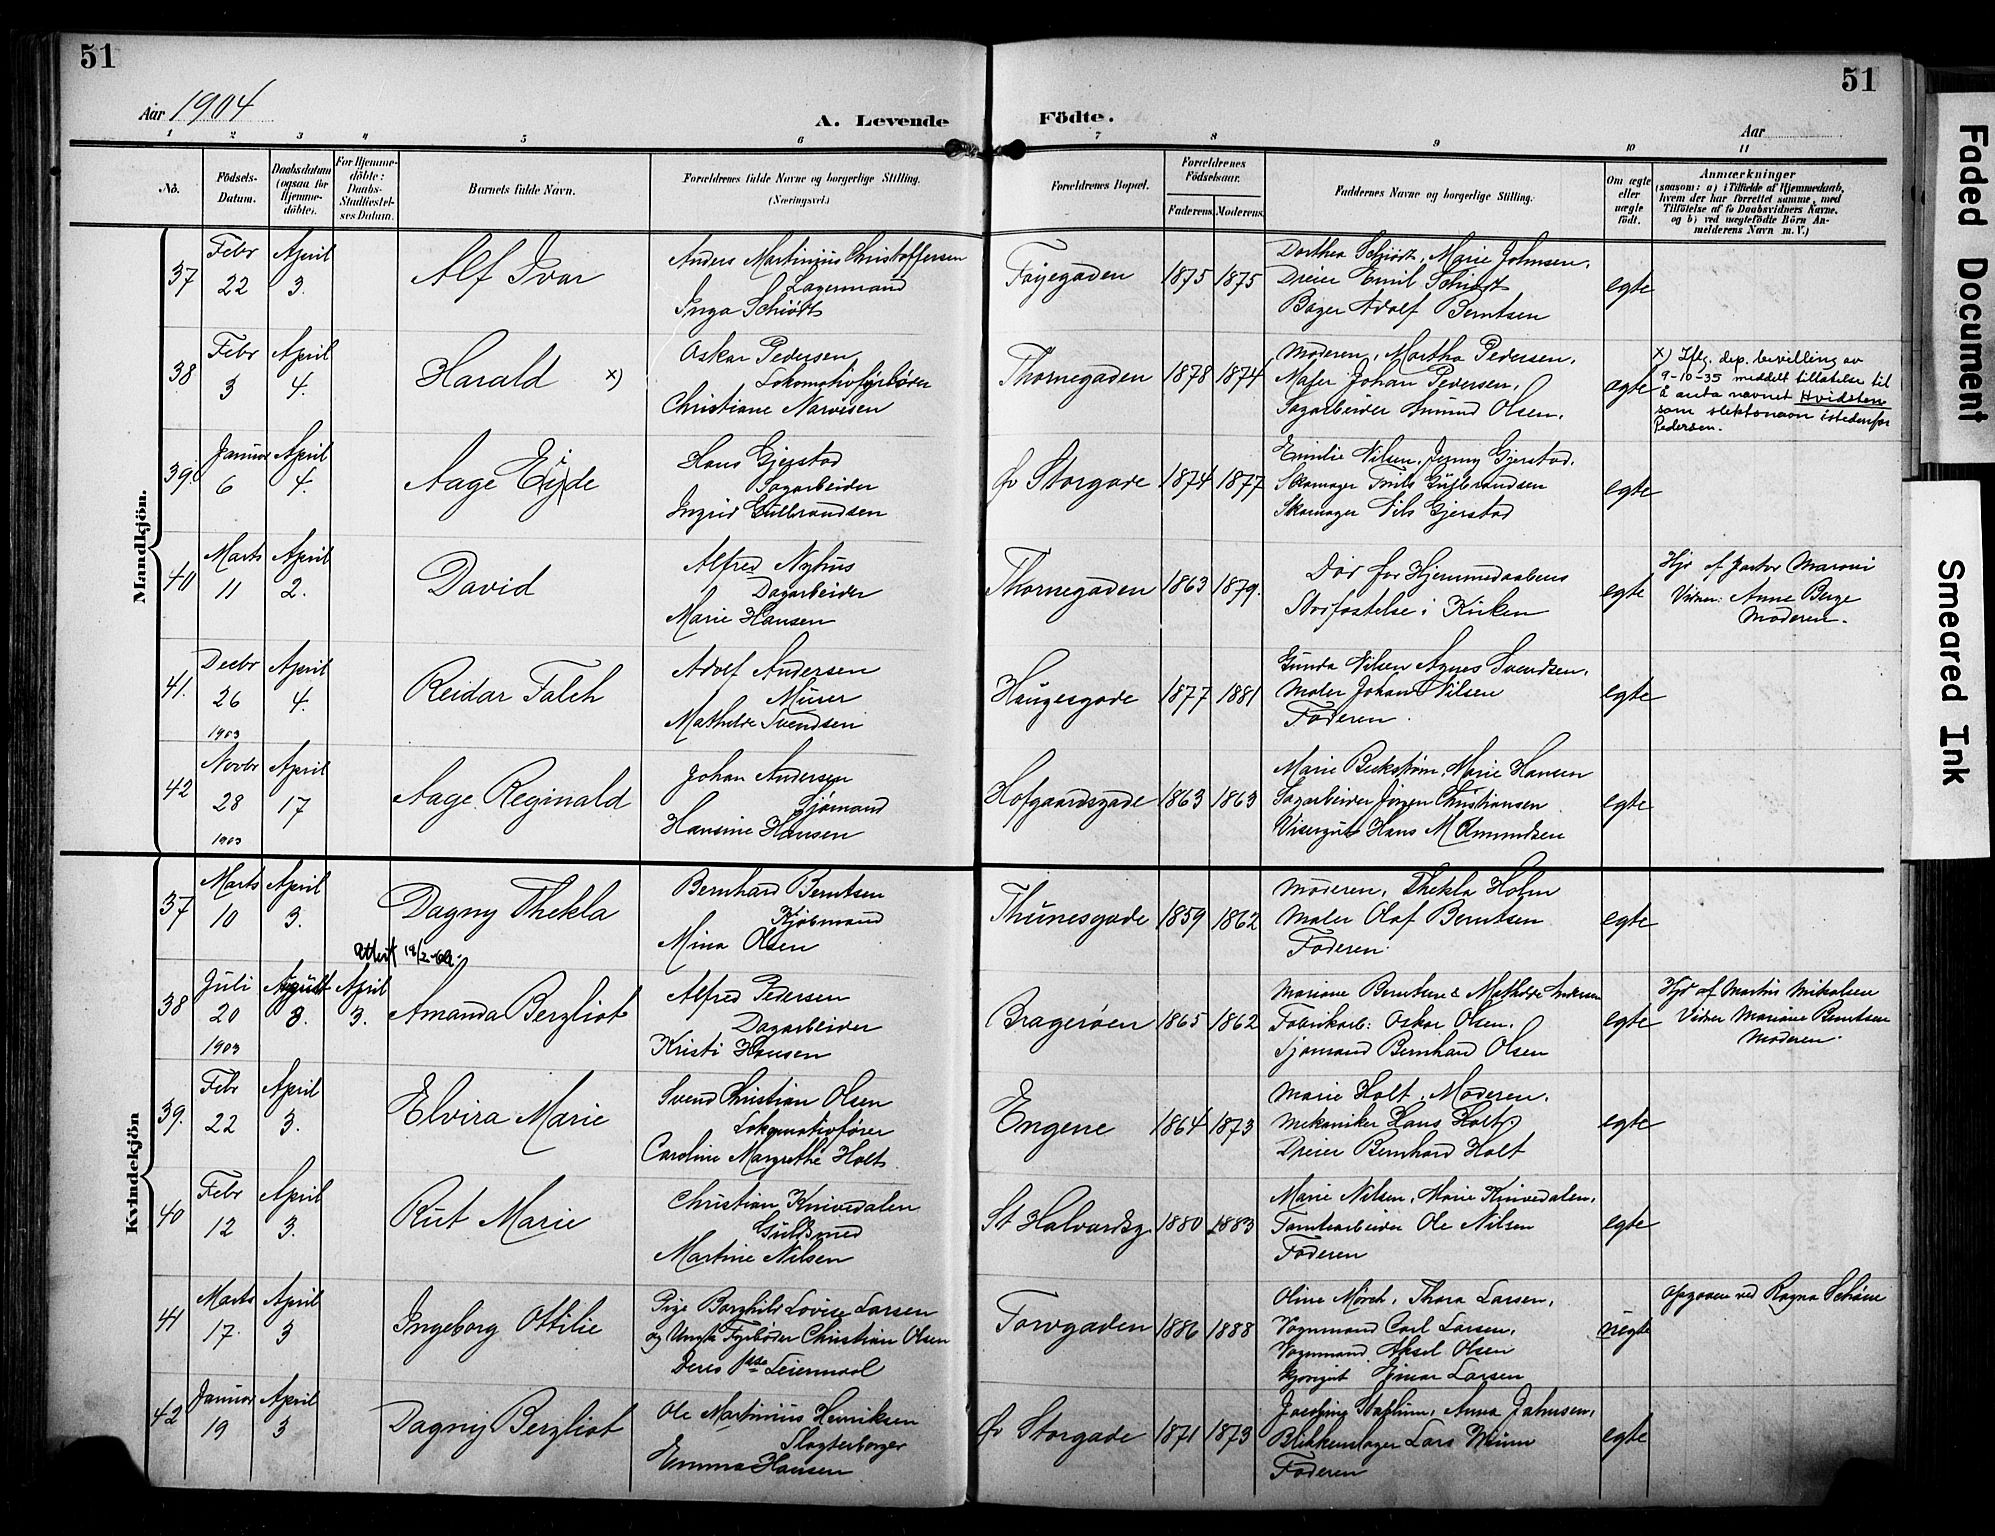 51
51
Aar 1904
A. Levende Födte.
Aar
1 2 3 4 5 6 7 8 9 10 11
No.
Födsels-Datum.
Daabsdatum (ogsaa for Hjemme-döbte).
For Hjemme-döbte: Daabs-Stadfæstel-ses Datum.
Barnets fulde Navn.
Forældrenes fulde Navne og borgerlige Stilling.
(Næringsvei.)
Forældrenes Bopæl.
Forældrenes Födselsaar.
Faderens. Moderens.
Faddernes Navne og borgerlige Stilling.
Om ægte eller uægte födt.
Anmærkninger
(saasom: a) i Tilfælde af Hjemmedaab,
hvem der har forrettet samme, med
Tilföielse af to Daabsvidners Navne.
og b) ved uægtefödte Börn An-
melderens Navn m. V.)
Mandkjön.
37 Febr 22 April 3. Alf Ivar
Anders Martinius Christoffersen
Lagermand
Inga Schiødt
Føyegaden 1875 1875
Dorthea Schiødt, Marie Johnsen,
Dreier Emil Schiødt
Bager Adolf Berntsen
egte
38 Febr 3 April 4. Harald x)
Oskar Pedersen
Lokomotivfyrbøder
Christiane Narvesen
Thornegaden 1878 1874
Moderen, Martha Pedersen,
Maler Johan Pedersen,
Sagarbeider Amund Olsen.
egte
x) Iflg. dep. bevilling av
9-10-35 meddelt tillatelse til
å anta navnet Hvidsten
som slektsnavn istedenfor
Pedersen.
39. Januar 6 April 4. Aage Eide
Hans Gjerstad
Sagarbeider
Ingrid Gulbrandsen
Øv Storgade 1874 1877
Emilie Nilsen, Jenny Gjerstad.
Skomager Nils Gjerstad
egte
40 Marts 11 April 2. David
Alfred Nyhus
Dagarbeider
Marie Hansen
Thornegaden 1863 1879.
Død før Hjemmedaabens
Stadfæstelse i Kirken
egte
Hjd af Pastor Maroni
Vidner: Anne Berge
Moderen.
41. Decbr 26 1903 April 4. Reidar Falch
Adolf Andersen
Murer
Mathilde Svendsen
Haugesgade 1877 1881
Gunda Nilsen Agnes Svendsen,
Maler Johan Nilsen
Faderen.
egte
42 Novbr 28 1903 April 17 Aage Reginald
Johan Andersen
Sjømand
Hansine Hansen
Hofgaardsgade 1863 1863
Marie Beckstrøm, Marie Hansen
Sagarbeider Jørgen Christiansen
Visergut Hans M Amundsen
egte
Kvindekjön
37 Marts 10 April 3. Dagny Thekla
Bernhard Berntsen
Kjøbmand
Mina Olsen
Thunesgade 1859 1862
Moderen, Thekla Holm
Maler Olaf Berntsen
Faderen.
egte
38 Juli 20 1903 August 3. April 3. Amanda Bergliot
Alfred Pedersen
Dagarbeider
Kristi Hansen
Bragerøen 1865 1862
Mariane Berntsen & Mathilde Andersen
Fabrikarb: Oskar Olsen,
Sjømand Bernhard Olsen
egte
Hjd af Martin Mikalsen
Vidner Mariane Berntsen
Moderen.
39. Febr 22 April 3. Elvira Marie
Svend Christian Olsen
Lokomotivfører
Caroline Margrethe Holt
Engene 1864 1873
Marie Holt, Moderen.
Mekaniker Hans Holt
Dreier Bernhard Holt
egte
40 Febr 12 April 3. Rut Marie
Christian Knivedalen
Guldsmed
Martine Nilsen
St Halvardsg 1880 1883
Marie Nilsen, Marie Knivedalen,
Tomtearbeider Ole Nilsen
Faderen
egte
41 Marts 17. April 3 Ingeborg Ottilie
Pige Borghild Lovise Larsen
og Ungk Fyrbøder Christian Olsen
Deres 1ste Leiermaal
Torvgaden 1886 1888
Oline Mørch, Thora Larsen,
Vognmand Carl Larsen,
Vognmand Aksel Olsen
Einar Larsen
uegte
Opgaven ved Ragna
42 Januar 19 April 3 Dagny Bergliot
Ole Martinius Henriksen
Slagterborger
Emma Hansen
Øv Storgade 1871 1873
Anna Jahnsen,
Blikkenslager Lars
Faderen
egte
Faded Document
Smeared Ink